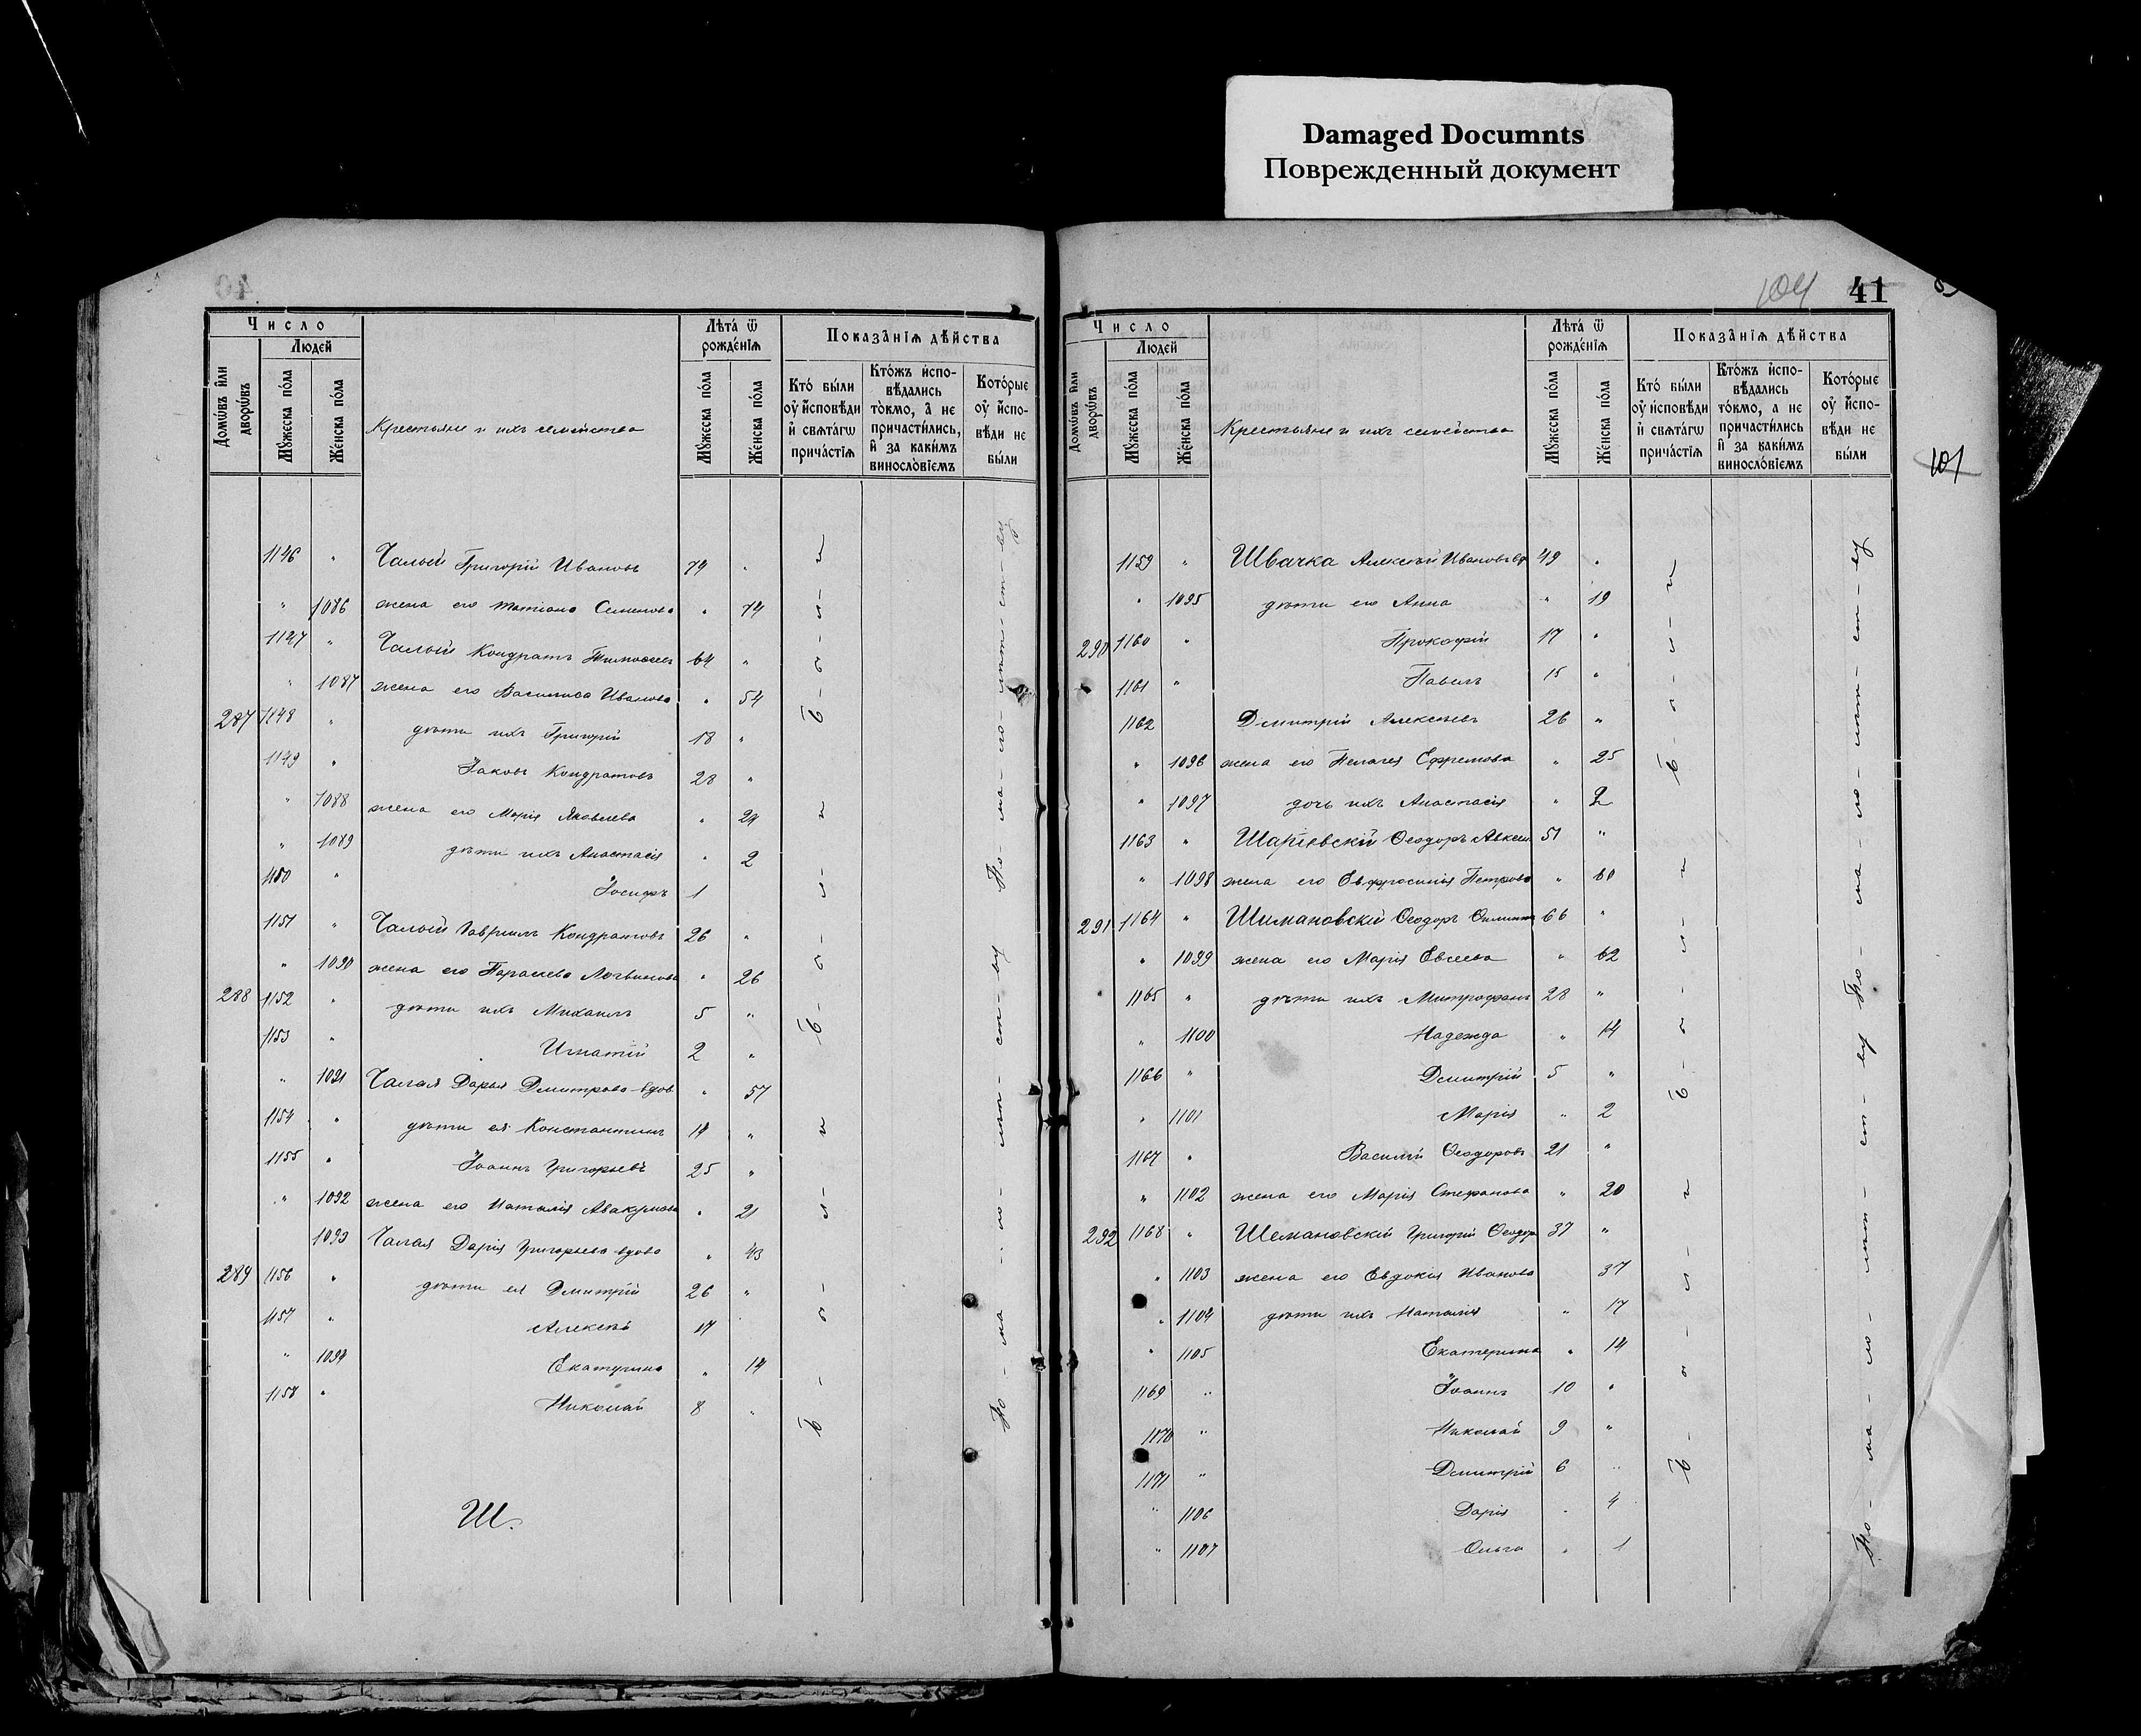 Damaged Documnts
Поврежденный документ
104 41
101
Число
Людей
Домѡвъ и҆лѝ дворѡ́въ
Мꙋ́жеска по́ла
Же́нска по́ла
Крестьяне и ихъ семейства
Лѣта́ ѿ рожде́нїѧ
Мꙋ́жеска по́ла
Же́нска по́ла
Показа̑нїѧ дѣ́йства
Кто̀ бы́ли ᲂу҆ и҆́сповѣди и҆ свѧта́гѡ прича́стїѧ
Кто́жъ и҆спо-вѣ́дались то́кмо, а҆ не причасти́лись, и҆ за каки́мъ винословїемъ
Кото́рые ᲂу҆ и҆́спо-вѣди не бы́ли
1146 " Чалый Григорій Ивановъ 74 "
" 1086 жена его Татіана Семенова " 74
1147 " Чалый Кондратъ Тимоѳеев 64 "
" 1087 жена его Василиса Иванова " 54
287 1148 " дѣти ихъ Григорій 18 "
1149 " Іаковъ Кондратовъ 28 "
" 1088 жена его Марія Яковлева " 24
" 1089 дѣти ихъ Анастасія " 2
1150 " Іосифъ 1
1151 " Чалый Гавріилъ Кондратовъ 26 "
" 1090 жена его Параскева Логвинова " 26
288 1152 " дѣти ихъ Михаилъ 5 "
1153 " Игнатій 2 "
" 1091 Чалая Дарья Дмитрова вдов " 57
1154 " дѣти ея Константинъ 14 "
1155 " Іоаннъ Григорьевъ 25 "
" 1092 жена его Наталія Авакумова " 21
1093 Чалая Дарія Григорьева вдова " 43
289 1156 " дѣти ея Дмитрій 26 "
1157 " Алексѣй 17
" 1094 Екатерина " 14
1158 " Николай 8 "
Ш.
б-ы-л-и
б-ы-л-и
По-ма-ло-лѣт-ст-ву
По-ма-ло-лѣт-ст-ву
Число
Людей
Домѡвъ и҆лѝ дворѡ́въ
Мꙋ́жеска по́ла
Же́нска по́ла
Крестьяне и ихъ семейства
Лѣта́ ѿ рожде́нїѧ
Мꙋ́жеска по́ла
Же́нска по́ла
Показа̑нїѧ дѣ́йства
Кто̀ бы́ли ᲂу҆ и҆́сповѣди и҆ свѧта́гѡ прича́стїѧ
Кто́жъ и҆спо-вѣ́дались то́кмо, а не причасти́лись и҆ за каки́мъ винословїемъ
Кото́рые ᲂу҆ и҆́спо-вѣди не бы́ли
1159 " Швачка Алексѣй Ивановъ вд 49 "
" 1095 дѣти его Анна " 19
290 1160 " Прокофій 17 "
1161 " Павелъ 15 "
1162 Дмитрій Алексѣевъ 26 "
" 1096 жена его Пелагея Ефремова " 25
" 1097 дочь ихъ Анастасія " 2
1163 " Ѳеодоръ 51 "
" 1098 жена его Евфросинія Петрова " 60
291 1164 " Шимановскій Ѳеодоръ 66 "
" 1099 жена его Марія Евсеева " 62
1165 " дѣти ихъ Митрофанъ 28 "
" 1100 Надежда " 14
1166 " Дмитрій 5 "
" 1101 Марія " 2
1167 " Василій Ѳеодоровъ 21 "
" 1102 жена его Марія Стефанова " 20
292 1168 " Шемановскій Григорій Ѳеодор 37 "
" 1103 жена его Евдокія Иванова 37
" 1104 дѣти ихъ Наталія " 17
" 1105 Екатерина " 14
1169 " Іоаннъ 10 "
1170 " Николай 9 "
1171 " Дмитрій 6 "
" 1106 Дарія " 4
" 1107 Ольга " 1
б-ы-л-и
б-ы-л-и
б-ы-л-и
По-ма-ло-лѣт-ст-ву
По-ма-ло-лѣт-ст-ву